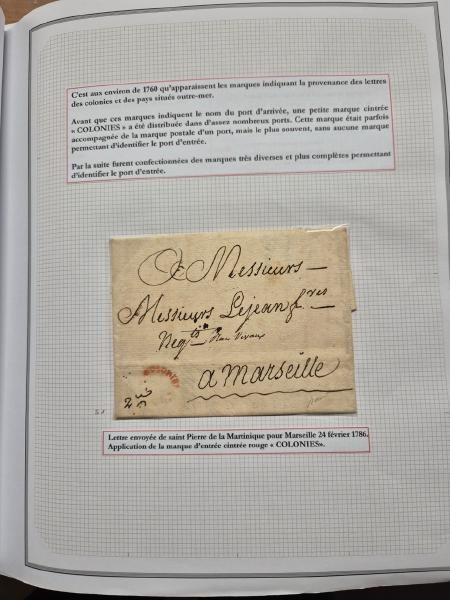 C'est aux environ de 1760 qu'apparaissent les marques indiquant la provenance des lettres
des colonies et des pays situés outre-mer.
Avant que ces marques indiquent le nom du port d'arrivée, une petite marque cintrée
« COLONIES » a été distribuée dans d'assez nombreux ports. Cette marque était parfois
accompagnée de la marque postale d'un port, mais le plus souvent, sans aucune marque
permettant d'identifier le port d'entrée.
Par la suite furent confectionnées des marques très diverses et plus complètes permettant
d'identifier le port d'entrée.
A Messieurs
Messieurs Lejean frres
Negts Rue Vacon
a Marseille
Lettre envoyée de saint Pierre de la Martinique pour Marseille 24 février 1786.
Application de la marque d'entrée cintrée rouge « COLONIES».